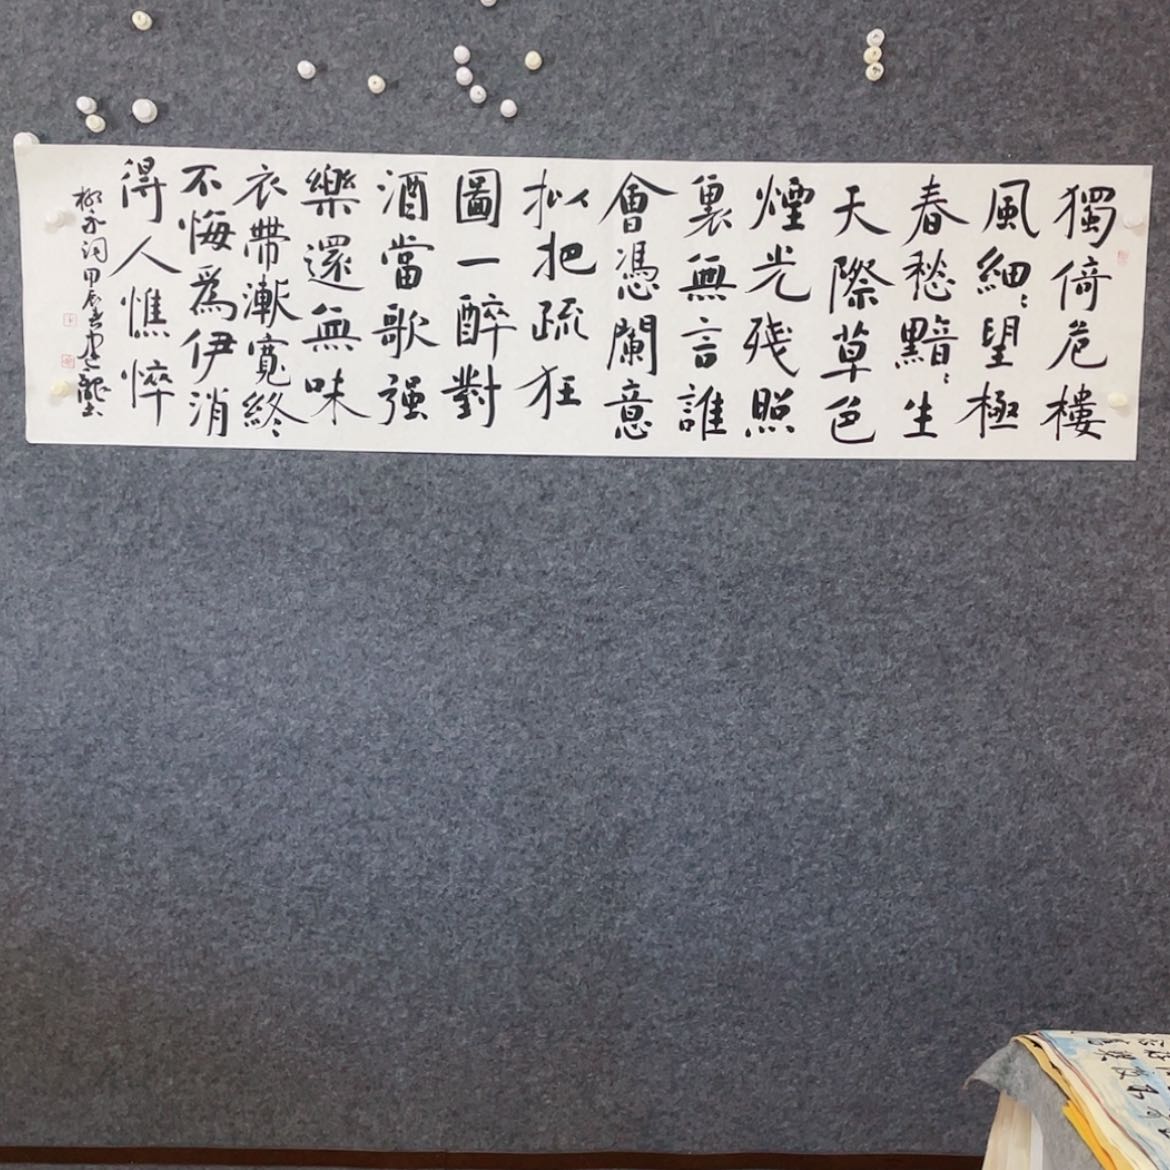 獨倚危樓
風細〻望極
春愁黯〻生
天際草色
煙光殘照
裏無言誰
會憑闌意
拟把疏狂
圖一醉對
酒當歌强
樂還無味
衣帶漸寬終
不悔為伊消
得人憔悴
柳永詞甲辰